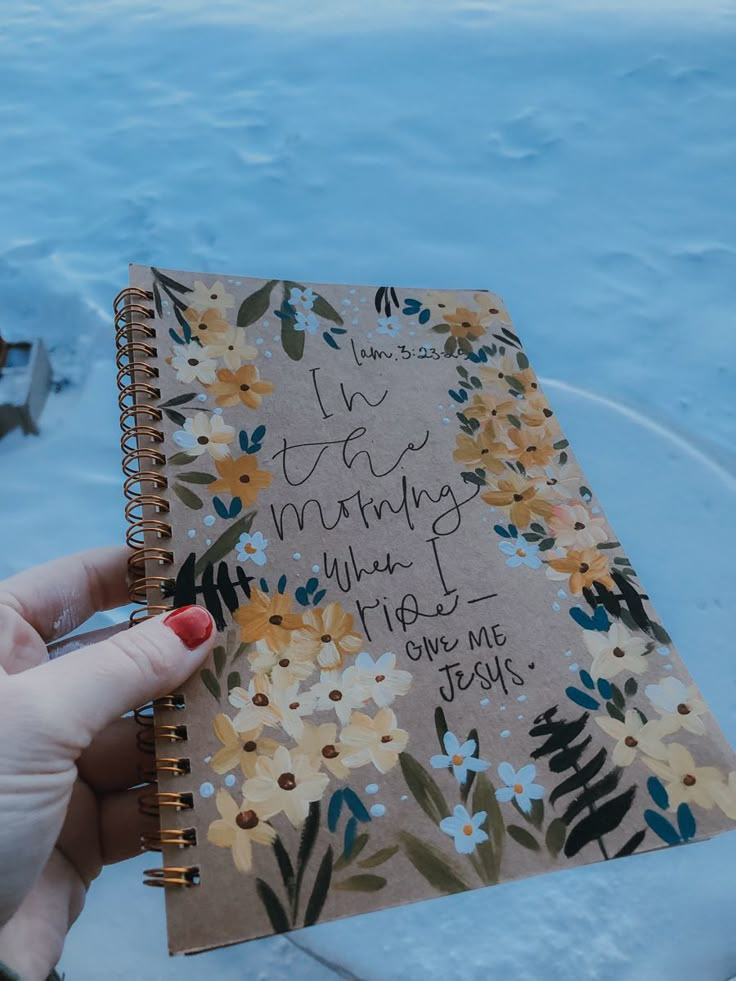 Lam. 3:23-26
In
the
morning
when I
rise—
GIVE ME
JESUS.